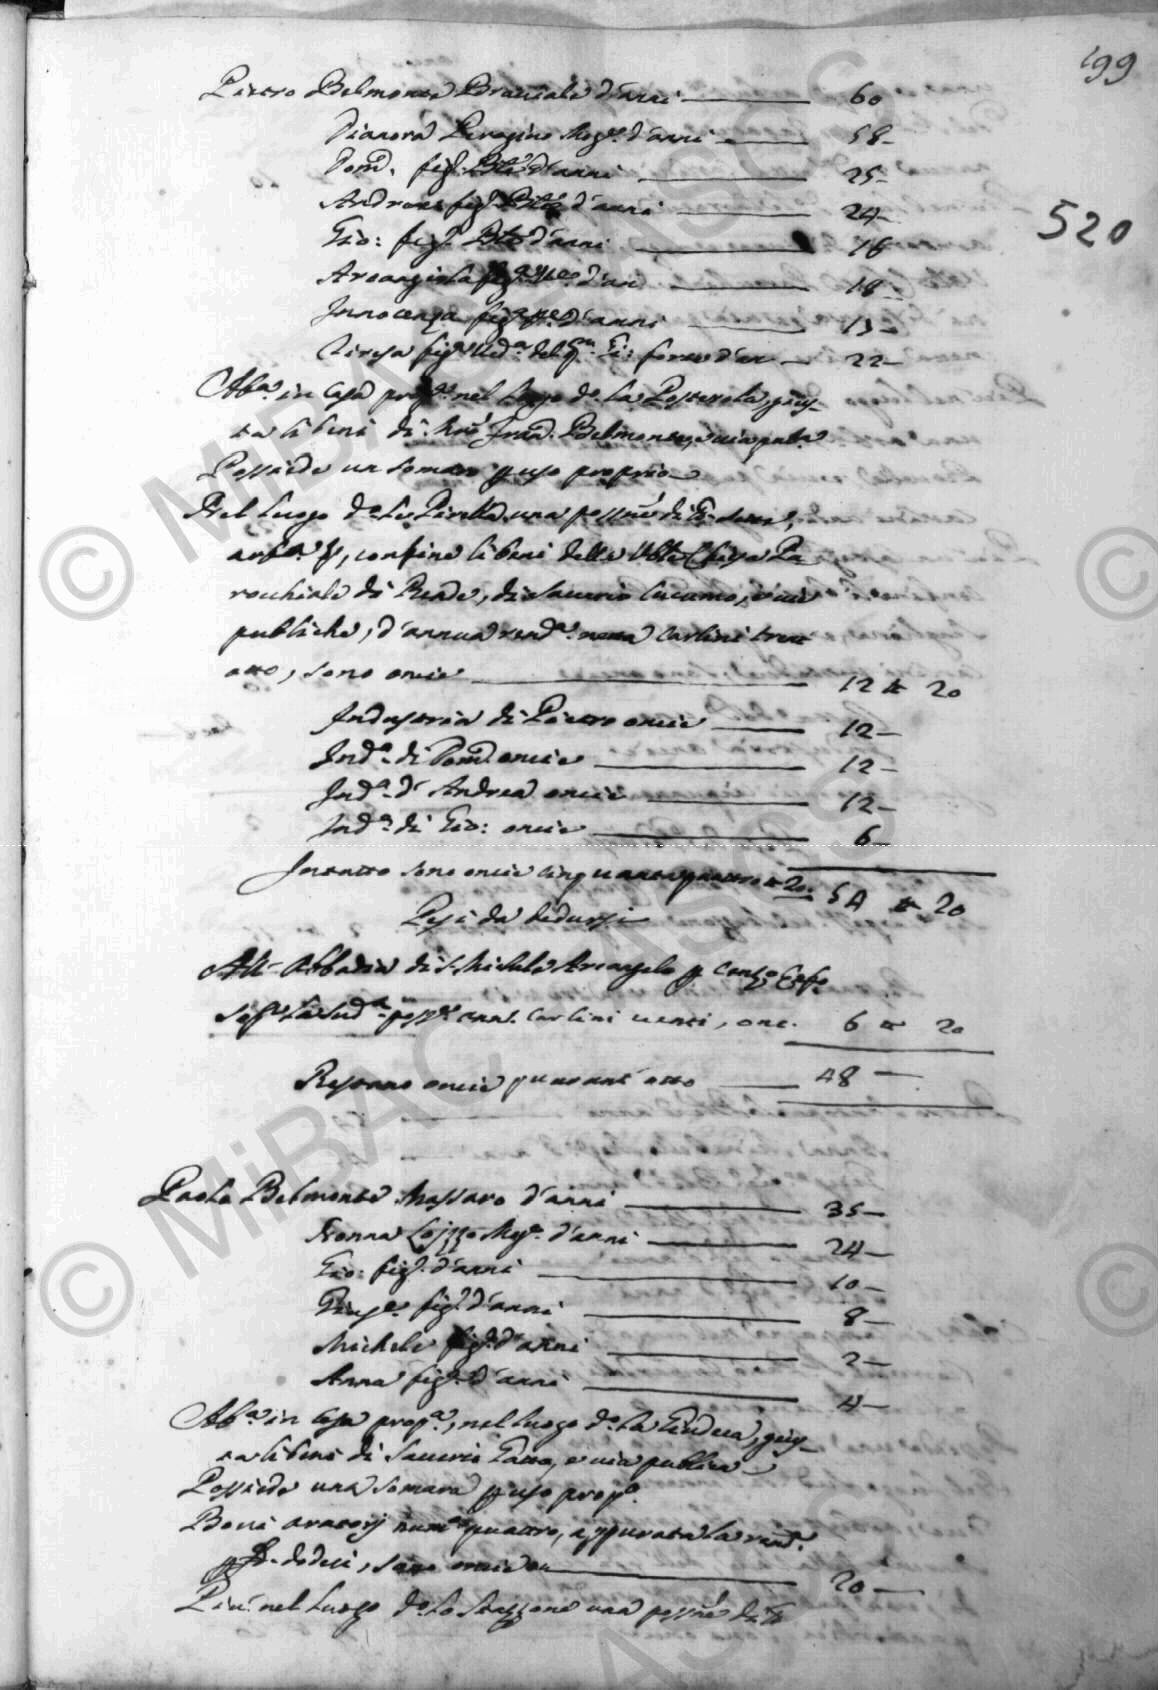 199
520
Pietro Belmonte Bracciale d'anni 60
Dianora Peregino Mog.e d'anni 58
Dom.o fig.o d'anni 25
Andrea fig.o d'anni 24
Gio: fig.o d'anni 16
Arcangiola fig.a d'an 18
Innocenza fig.a d'anni 13
Teresa fig.a Ved.a del q.m d'an 22
Ab.a in casa prop.a nel luogo d.o la giux-
ta li beni di Belmonte, e via pub.a
Possiede un somaro p uso proprio
Nel luogo d.o una poss.ne di
confine li beni della Chiesa Pa
rochiale di Rende, di Saverio Cucumo, e vie
publiche, d'annua rend.a netta carlini trent
otto, sono oncie 12 tt 20
Industria di Pietro oncie 12
Ind.a di Dom.o oncie 12
Ind.a d'Andrea oncie 12
Ind.a di Gio: oncie 6
In tutto sono oncie cinquantaquattro tt 20 54 tt 20
Pesi da dedursi
All'Abbadia di S. Michele Arcangelo p censo
sop.a la sud.a poss.ne ann. carlini venti, onc. 6 tt 20
Restano oncie quarant'otto 48
Paolo Belmonte Massaro d'anni 35
Nonna Mog.e d'anni 24
Gio: fig.o d'anni 10
fig.o d'anni 8
Michele fig.o d'anni 2
Anna fig.a d'anni 4
Ab.a in casa prop.a, nel luogo d.o la Giudeca, giux-
ta li beni di Saverio Gatto, e via publica
Possiede una somara p uso prop.o
Bovi aratorj num.o quattro, appurata la rend.a
p dodeci, sono oncie 20
Più nel luogo d.o lo Stazzone una poss.ne di